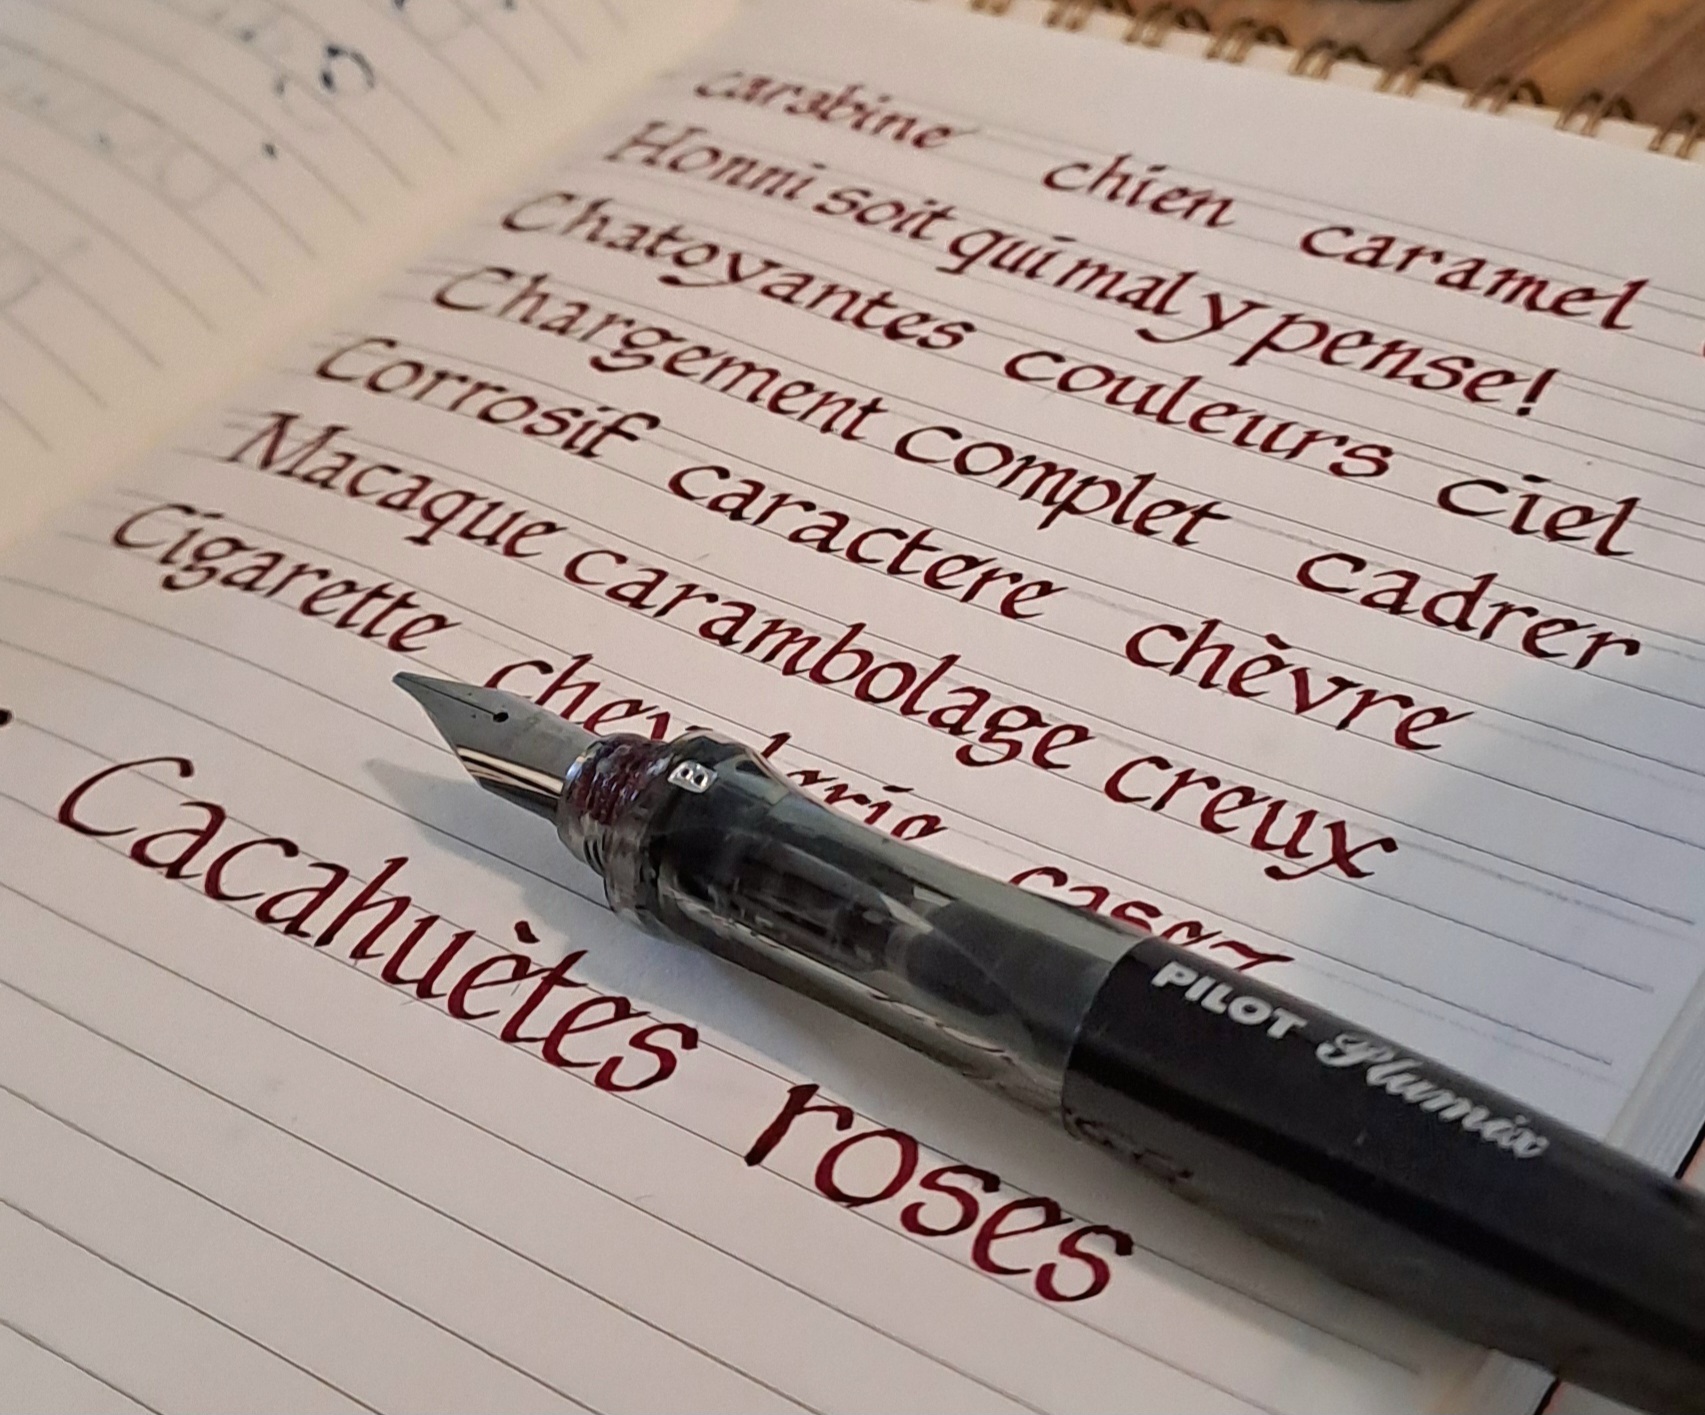 carabine chien caramel
Honni soit qui mal y pense!
Chatoyantes couleurs ciel
Chargement complet cadrer
Corrosif caractere chèvre
Macaque carambolage creux
Cigarette
Cacahuètes roses
B
PILOT Plumix